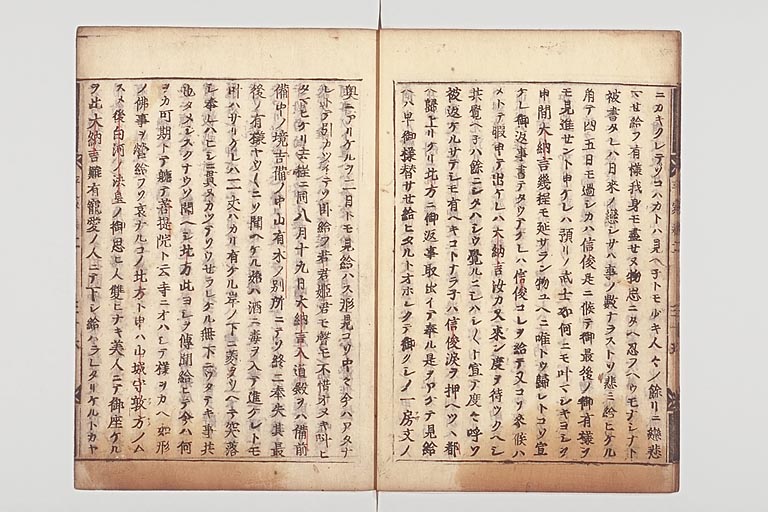 ニカキクレテソコハカトハ見ヘ子トモ少キ人々ノ餘リニ戀悲
マせ給フ有様我身モ盡せヌ物思ニタヘ忍フヘウモナシナト
被書タレハ日来ノ戀シサハ事ノ數ナラストソ悲ミ給ヒケル
角テ四五日モ過シカハ信俊是ニ候テ御最後ノ御有様ヲ
モ見進せント申ケレハ預リノ武士如何ニモ叶マシキヨシヲ
申間大納言幾程モ延サラン物ユヘニ唯トウ歸レトコソ宣
ケレ御返事書テタウテケレハ信俊コレヲ給テ又コソ参候ハ
メトテ暇申テ出ケレハ大納言汝カ又来ン度ヲ待ツクヘシ
共覺ヘ子ハ餘ニシタハシウ覺ルニシハシ〱ト宣テ度々呼ソ
被返ケルサテシモ有ヘキコトナラ子ハ信俊涙ヲ押ヘツヽ都
ヘ歸上リケリ北方ニ御返事取出イテ奉ル是ヲアケテ見給
ヘハ早御様替サせ給ヒタルトオホシクテ御クシノ一房文ノ
奥ニアリケルヲ二目トモ見給ハス形見コソ中々今ハアタナ
ルトテ引カツイテソ臥給フ若君姫君モ聲モ不惜オメキ叫ヒ
タマヒケリ去程ニ同八月十九日大納言入道殿ヲハ備前
備中ノ境吉備ノ中山有木ノ別所ニテソ終ニ奉失其最
後ノ有様ヤウ〱ニソ聞ヘケル始ハ酒ニ毒ヲ入テ進テレトモ
叶ハサリケレハ二丈ハカリ有ケル岸ノ下ニ菱ヲウヘテ突落
シ奉レハヒシニ貫ヌカツテソウせラレケル無下ニウタテキ事共
也タメシスクナウソ聞ヘシ北方此ヨシヲ傳聞給ヒテ今ハ何
ヲカ可期トテ軈テ菩提院ト云寺ニオハシテ様ヲカヘ如形
ノ佛事ヲ營給フソ哀ナルコノ北方ト申ハ山城守敦方ノム
スメ後白河ノ法皇ノ御思ヒ人雙ヒナキ美人ニテ御座ケル
ヲ此大納言難有寵愛ノ人ニテ下シ給ハラレタリケルトカヤ